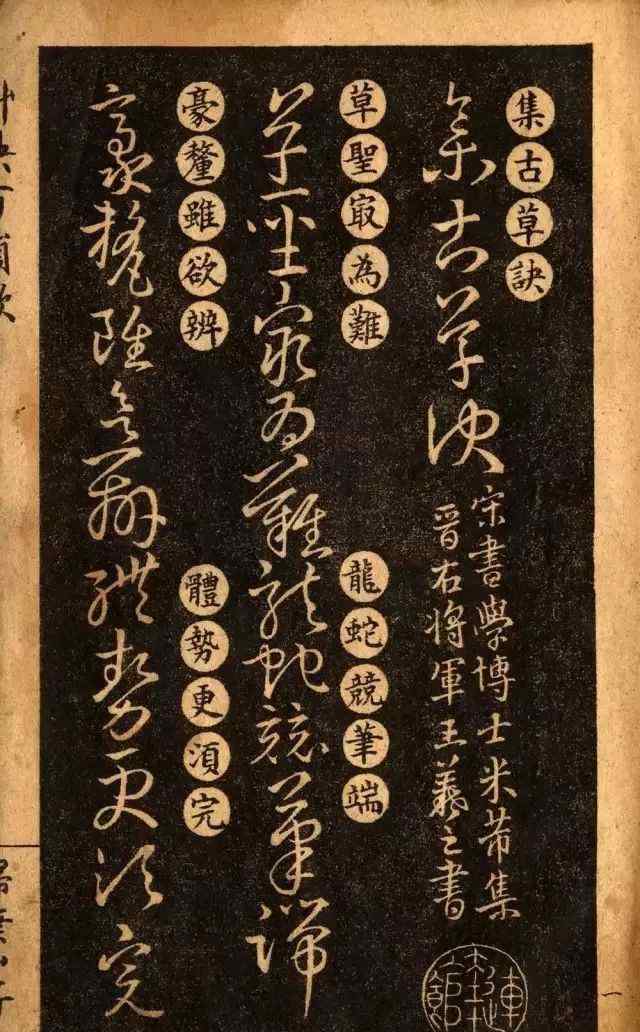 集古草訣
集古草訣
宋書學博士米芾集
晋右將軍王羲之書
草聖㝡為難
龍蛇競筆端
草聖㝡為難龍蛇競筆端
豪釐雖欲辨
體勢更須完
豪釐雖欲辨體勢更須完
一